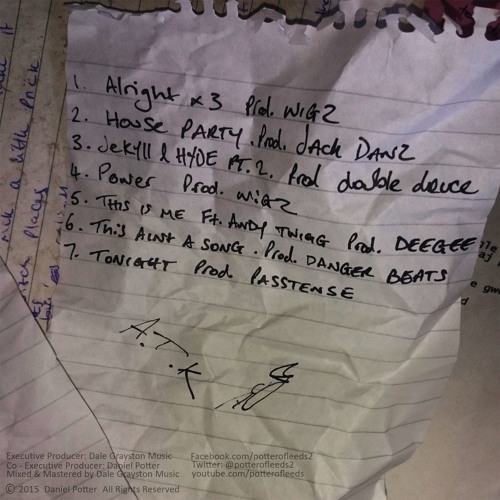 1. Alright x3 Prod. WiGZ
2. House PARTY. Prod. JAck DANZ
3. Jekyll & HYDE PT. 2. Prod double deuce
4. Power Prod. WiGZ
5. THIS IS ME Ft. ANDY TWIGG Prod. DEEGEE
6. This AINT A SONG. Prod. DANGER BEATS
7. TONIGHT Prod. PASSTENSE
A.T.K
Executive Producer: Dale Grayston Music Facebook.com/potterofleeds2
Co - Executive Producer: Daniel Potter Twitter: @potterofleeds
Mixed & Mastered by Dale Grayston Music youtube.com/potterofleeds
© 2015 Daniel Potter All Rights Reserved